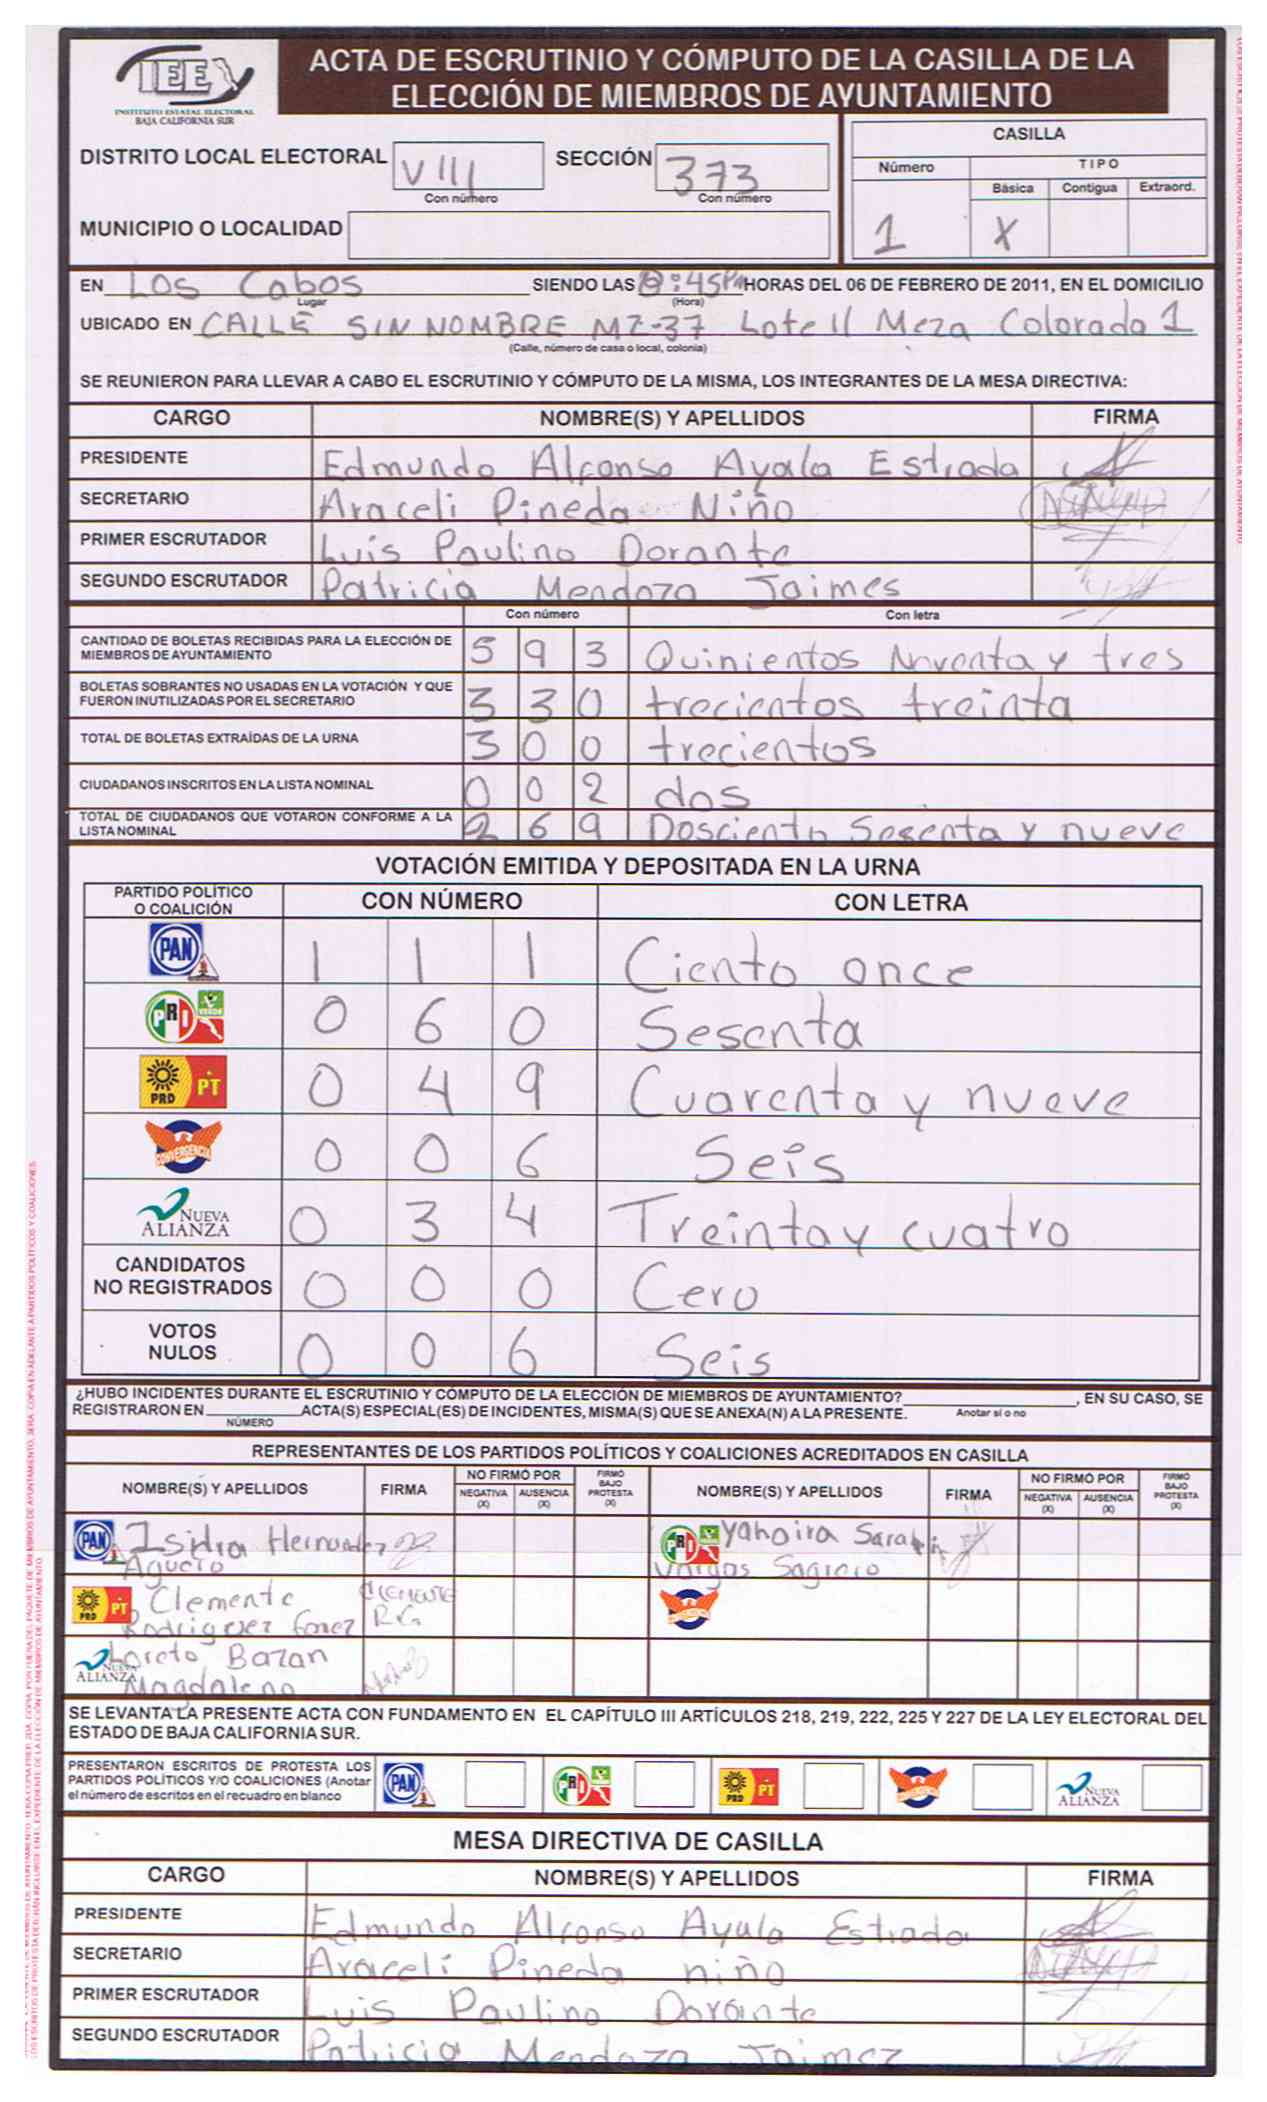 IEE
INSTITUTO ESTATAL ELECTORAL
BAJA CALIFORNIA SUR
ACTA DE ESCRUTINIO Y CÓMPUTO DE LA CASILLA DE LA
ELECCIÓN DE MIEMBROS DE AYUNTAMIENTO
DISTRITO LOCAL ELECTORAL VIII SECCIÓN 373
Con número Con número
MUNICIPIO O LOCALIDAD
CASILLA
Número TIPO
Básica Contigua Extraord.
1 X
EN Los Cabos SIENDO LAS 8:45PM HORAS DEL 06 DE FEBRERO DE 2011, EN EL DOMICILIO
Lugar (Hora)
UBICADO EN CALLE SIN NOMBRE MZ-37 Lote 11 Meza Colorada 1
(Calle, número de casa o local, colonia)
SE REUNIERON PARA LLEVAR A CABO EL ESCRUTINIO Y CÓMPUTO DE LA MISMA, LOS INTEGRANTES DE LA MESA DIRECTIVA:
CARGO NOMBRE(S) Y APELLIDOS FIRMA
PRESIDENTE Edmundo Alfonso Ayala Estrada
SECRETARIO Araceli Pineda Niño
PRIMER ESCRUTADOR Luis Paulino Dorante
SEGUNDO ESCRUTADOR Patricia Mendoza Jaimes
Con número Con letra
CANTIDAD DE BOLETAS RECIBIDAS PARA LA ELECCIÓN DE
MIEMBROS DE AYUNTAMIENTO 5 9 3 Quinientos Noventa y tres
BOLETAS SOBRANTES NO USADAS EN LA VOTACIÓN Y QUE
FUERON INUTILIZADAS POR EL SECRETARIO 3 3 0 trecientos treinta
TOTAL DE BOLETAS EXTRAÍDAS DE LA URNA 3 0 0 trecientos
CIUDADANOS INSCRITOS EN LA LISTA NOMINAL 0 0 2 dos
TOTAL DE CIUDADANOS QUE VOTARON CONFORME A LA
LISTA NOMINAL 2 6 9 Dosciento Sesenta y nueve
VOTACIÓN EMITIDA Y DEPOSITADA EN LA URNA
PARTIDO POLÍTICO
O COALICIÓN CON NÚMERO CON LETRA
PAN 1 1 1 Ciento once
PRI VERDE 0 6 0 Sesenta
PRD PT 0 4 9 Cuarenta y nueve
CONVERGENCIA 0 0 6 Seis
NUEVA ALIANZA 0 3 4 Treinta y cuatro
CANDIDATOS
NO REGISTRADOS 0 0 0 Cero
VOTOS
NULOS 0 0 6 Seis
¿HUBO INCIDENTES DURANTE EL ESCRUTINIO Y CÓMPUTO DE LA ELECCIÓN DE MIEMBROS DE AYUNTAMIENTO? , EN SU CASO, SE
REGISTRARON EN ACTA(S) ESPECIAL(ES) DE INCIDENTES, MISMA(S) QUE SE ANEXA(N) A LA PRESENTE. Anotar sí o no
NÚMERO
REPRESENTANTES DE LOS PARTIDOS POLÍTICOS Y COALICIONES ACREDITADOS EN CASILLA
NOMBRE(S) Y APELLIDOS FIRMA NO FIRMÓ POR NEGATIVA (X) AUSENCIA (X) FIRMÓ BAJO PROTESTA (X) NOMBRE(S) Y APELLIDOS FIRMA NO FIRMÓ POR NEGATIVA (X) AUSENCIA (X) FIRMÓ BAJO PROTESTA (X)
PAN Isidra Hernandez PRI Yahoira
Aguero Vargas
PRD PT Clemente CLEMENTE
Rodriguez Gomez R.G.
NUEVA ALIANZA Loreto Bazan
Magdaleno
SE LEVANTA LA PRESENTE ACTA CON FUNDAMENTO EN EL CAPÍTULO III ARTÍCULOS 218, 219, 222, 225 Y 227 DE LA LEY ELECTORAL DEL
ESTADO DE BAJA CALIFORNIA SUR.
PRESENTARON ESCRITOS DE PROTESTA LOS
PARTIDOS POLÍTICOS Y/O COALICIONES (Anotar
el número de escritos en el recuadro en blanco
PAN PRI PRD PT NUEVA ALIANZA
MESA DIRECTIVA DE CASILLA
CARGO NOMBRE(S) Y APELLIDOS FIRMA
PRESIDENTE Edmundo Alfonso Ayala Estrada
SECRETARIO Araceli Pineda niño
PRIMER ESCRUTADOR Luis Paulino Dorante
SEGUNDO ESCRUTADOR Patricia Mendoza Jaimez